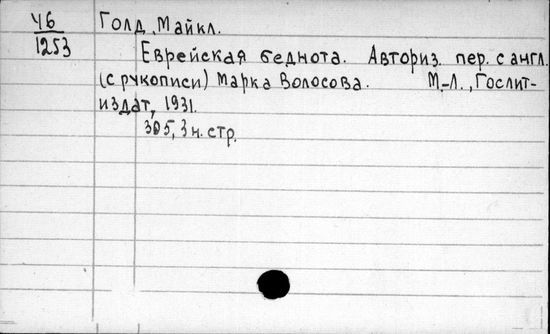 Ч6
1253
Голд, Майкл.
Еврейская беднота. Авториз. пер. с англ.
(с рукописи) Марка Волосова. М.-Л., Гослит-
издат, 1931.
305, 3 н. стр.